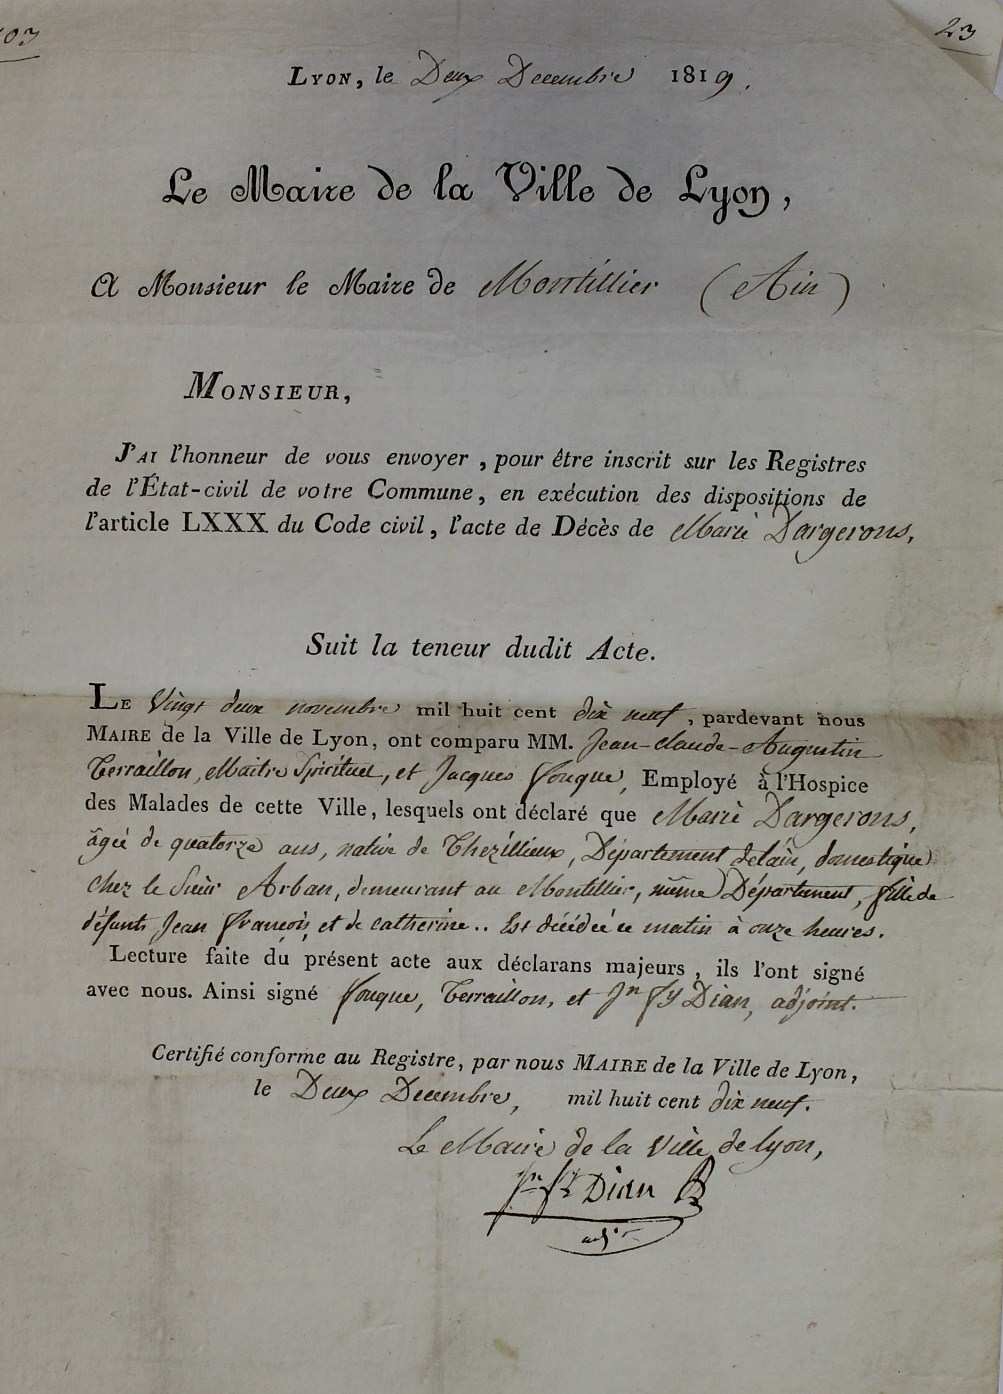 103
23
Lyon, le Deux Decembre 1819.
Le Maire de la Ville de Lyon,
A Monsieur le Maire de Montillier (Ain)
Monsieur,
J'ai l'honneur de vous envoyer, pour être inscrit sur les Registres
de l'État-civil de votre Commune, en exécution des dispositions de
l'article LXXX du Code civil, l'acte de Décès de Marie Dargerons,
Suit la teneur dudit Acte.
Le Vingt deux novembre mil huit cent dix neuf, pardevant nous
Maire de la Ville de Lyon, ont comparu MM. Jean-claude-Augustin
Terraillon, Maitre Spirituel, et Jacques Fouque, Employé à l'Hospice
des Malades de cette Ville, lesquels ont déclaré que Marie Dargerons,
âgée de quatorze ans, native de Thezillieux, Département delain, domestique
chez le Sieur Arban, demeurant au Montillier, même Département, fille de
défunts Jean François, et de catherine.. Est décédée ce matin à onze heures.
Lecture faite du présent acte aux déclarans majeurs, ils l'ont signé
avec nous. Ainsi signé Fouque, Terraillon, et Jn Fs Dian, adjoint.
Certifié conforme au Registre, par nous Maire de la Ville de Lyon,
le Deux Decembre, mil huit cent dix neuf.
Le Maire de la Ville de lyon,
Jn Fs Dian
adj.